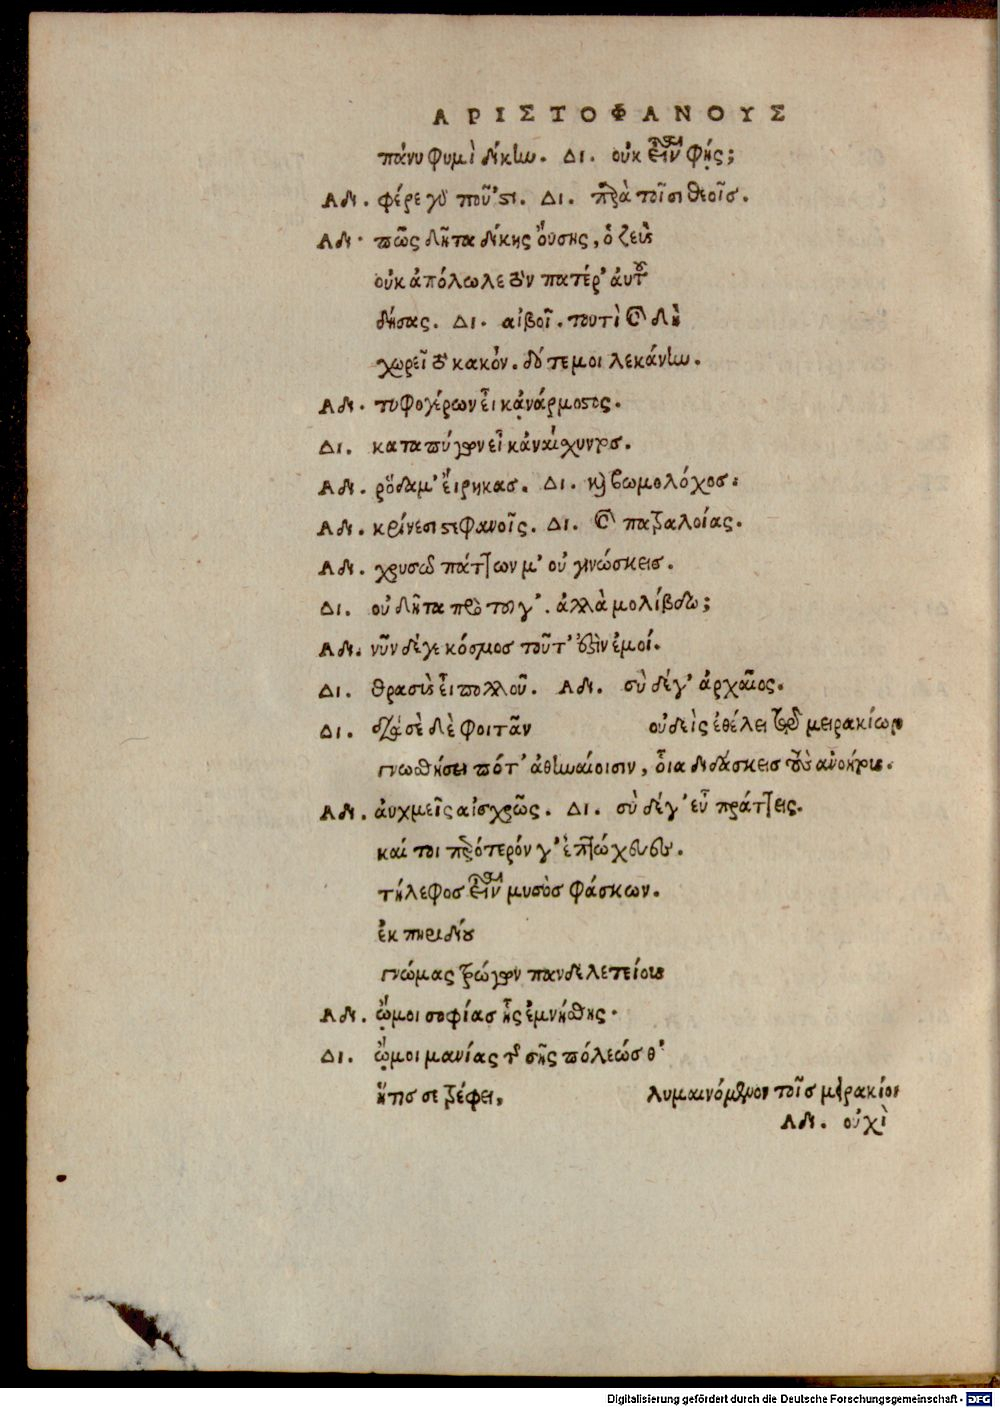 ΑΡΙΣΤΟΦΑΝΟΥΣ
πάνυ φυμὶ δίκην. ΔΙ. οὐκ εἶναι φής;
ΑΔ. φέρε γὸ ποῦ 'στι. ΔΙ. παρὰ τοῖσι θεοῖσ.
ΑΔ. πῶς δῆτα δίκης ὄυσης, ὁ ζεὺς
οὐκ ἀπόλωλε τὸν πατέρ' ἀυτοῦ
δήσας. ΔΙ. αἰβοῖ. τουτὶ καὶ δὴ
χωρεῖ τὸ κακόν. δότε μοι λεκάνην.
ΑΔ. τυφογέρων εἶ κᾀνάρμοστος.
ΔΙ. καταπύγων εἶ κἀναίσχυντοσ.
ΑΔ. ῥόδα μ' ἔιρηκασ. ΔΙ. καὶ βωμολόχοσ.
ΑΔ. κρίνεσι στεφανοῖς. ΔΙ. καὶ πατραλοίας.
ΑΔ. χρυσῶ πάττων μ' οὐ γινώσκεισ.
ΔΙ. οὐ δῆτα πρὸ τοῦ γ'. ἀλλὰ μολίβδω;
ΑΔ. νῦν δέ γε κόσμοσ τοῦτ' ἐστὶν ἐμοί.
ΔΙ. θρασὺς εἶ πολλοῦ. ΑΔ. σὺ δέ γ' ἀρχαῖος.
ΔΙ. διὰ σὲ δὲ φοιτᾶν οὐδεὶς ἐθέλει τῶν μειρακίων
γνωθήσει πότ' ἀθηναίοισιν, οἷα διδάσκεισ τοὺς ἀνοήτους.
ΑΔ. ἀυχμεῖς αἰσχρῶς. ΔΙ. σὺ δέ γ' εὖ πράττεις.
καί τοι πρότερόν γ' ἐπτώχευες.
τήλεφοσ εἶναι μυσὸσ φάσκων.
ἐκ πηριδίου
γνώμας τρώγων πανδελετείους
ΑΔ. ᾤμοι σοφίασ ἧς ἐμνήσθης.
ΔΙ. ᾤμοι μανίας τῆς σῆς πόλεώσ θ'
ἥτισ σε τρέφει, λυμαινόμενον τοῖσ μειρακίοις
ΑΔ. οὐχὶ
Digitalisierung gefördert durch die Deutsche Forschungsgemeinschaft - DFG